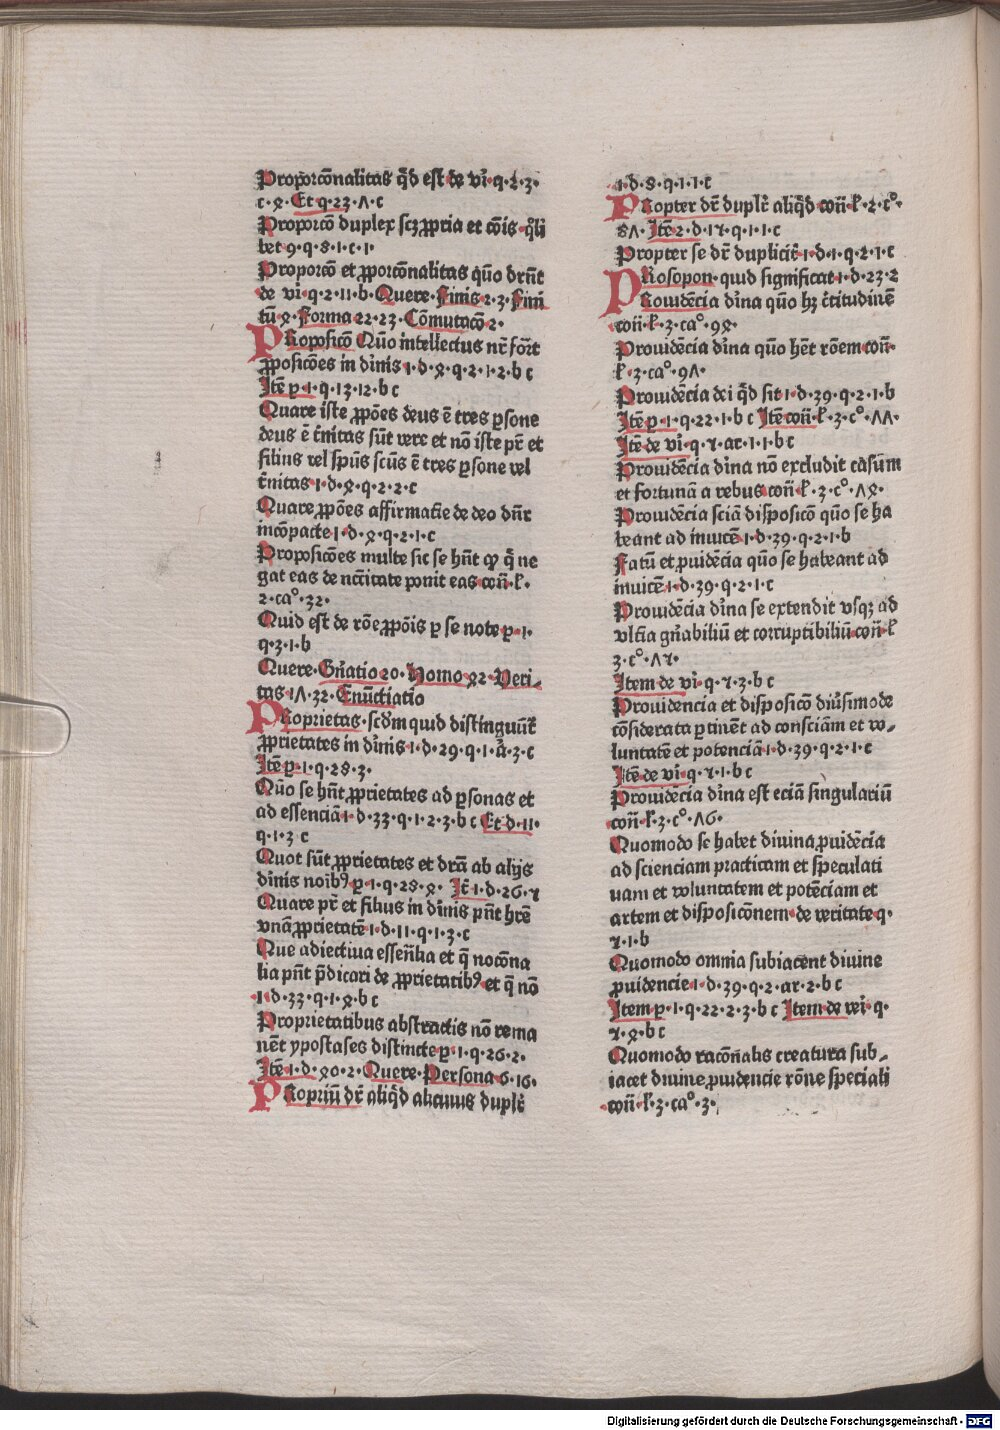 Proporcōnalitas q̄d est de vı̄·q·2·3·
c·ꝝ· Et q·23·ʌ·c
Proporcō duplex scꝫ ꝓpria et cōis q̄li
bet 9·q·8·1·c·1·
Proporcō et ꝓporcōnalitas quō drn̄t
de vı̄·q·2·11·b· Quere·Finis·2·3·Fini
tū·ꝝ·Forma·22·23·Cōmutacō·2·
PRoposicō Quō intellectus nr̄ for̄t
ꝓposicōes in dı̄nis·1·d·ꝝ·q·2·1·2·b c
Itē ꝑ·1·q·13·12·b c
Quare iste ꝓpōes deus ē tres ꝑsone
deus ē tı̄nitas sūt vere et nō iste pr̄ et
filius vel spūs scūs ē tres ꝑsone vel
tı̄nitas·1·d·ꝝ·q·2·2·c
Quare ꝓpōes affirmatı̄e de deo dn̄r
incōpacte·1·d·ꝝ·q·2·1·c
Proposicōes multe sic se hn̄t ꝙ q̄ ne
gat eas de nc̄citate ponit eas con̄·ł·
2·ca°·32·
Quid est de rōe ꝓpōis ꝑ se note ꝑ·1·
q·3·1·b
Quere·Gn̄atio·20·Homo·ꝝ2·Veri-
tas·1ʌ·32·Enūctiatio
PRoprietas·scd̄m quid distinguūt̄
ꝓprietates in dı̄nis·1·d·29·q·1·ā·3·c
Itē ꝑ·1·q·28·3·
Quō se hn̄t ꝓprietates ad ꝑsonas et
ad essenciā·1·d·33·q·1·2·3·b c Et d·11·
q·1·3·c
Quot sūt ꝓprietates et dr̄a ab alijs
dı̄nis noı̄bꝰ ꝑ·1·q·28·ꝝ· It̄·1·d·26·ɿ
Quare pr̄ et filius in dı̄nis pn̄t hr̄e
vnā ꝓprietatē·1·d·11·q·1·3·c
Que adiectiua essen̄lia et q̄ nocōna
lia pn̄t p̄dicari de ꝓprietatibꝰ et q̄ nō
·1·d·33·q·1·ꝝ·b c
Proprietatibus abstractis nō rema
nēt ypostases distincte ꝑ·1·q·26·2·
Itē·1·d·ꝝ0·2·Quere·Persona·6·16·
PRopriū dr̄ aliq̄d alicuius duplr̄
·1·d·8·q·1·1·c
PRopter dr̄ duplr̄ aliq̄d con̄·ł·2·c°·
8ʌ·Itē 2·d·1ɿ·q·1·1·c
Propter se dr̄ duplicit̄·1·d·1·q·2·1·c
PRosopon·quid significat·1·d·23·2
PRouidēcia dı̄na quō hꝫ c̄titudinē
con̄·ł·3·ca°·9ꝝ·
Prouidēcia dı̄na quō hēt rōem con̄·
ł·3·ca°·9ʌ·
Prouidēcia dei q̄d sit·1·d·39·q·2·1·b
Itē ꝑ·1·q·22·1·b c Itē con̄·ł·3·c°·ʌʌ·
Itē de vı̄·q·ɿ·ar·1·1·b c
Prouidēcia dı̄na nō excludit casum
et fortunā a rebus con̄·ł·3·c°·ʌꝝ·
Prouidēcia sciā disposicō quō se ha
beant ad inuicē·1·d·39·q·2·1·b
Fatū et ꝓuidēcia quō se habeant ad
inuicē·1·d·39·q·2·1·c
Prouidēcia dı̄na se extendit vsqꝫ ad
vltı̄a gn̄abiliū et corruptibiliū con̄·ł
3·c°·ʌɿ·
Item de vı̄·q·ɿ·3·b c
Prouidencia et disposicō diuı̄simode
cōsiderata ꝑtinēt ad consciām et vo-
luntatē et potenciā·1·d·39·q·2·1·c
Itē de vı̄·q·ɿ·1·b c
Prouidēcia dı̄na est eciā singulariū
con̄·ł·3·c°·ʌ6·
Quomodo se habet diuina ꝓuidēcia
ad scienciam practicam et speculati
uam et voluntatem et potēciam et
artem et disposicōnem·de veritate q·
ɿ·1·b
Quomodo omnia subiacent diuine
ꝓuidencie·1·d·39·q·2·ar·2·b c
Item ꝑ·1·q·22·2·3·b c Item de veı̄·q·
ɿ·ꝝ·b c
Quomodo racōnalis creatura sub-
iacet diuine ꝓuidencie rōne speciali
con̄·ł·3·ca°·3·
Digitalisierung gefördert durch die Deutsche Forschungsgemeinschaft - DFG